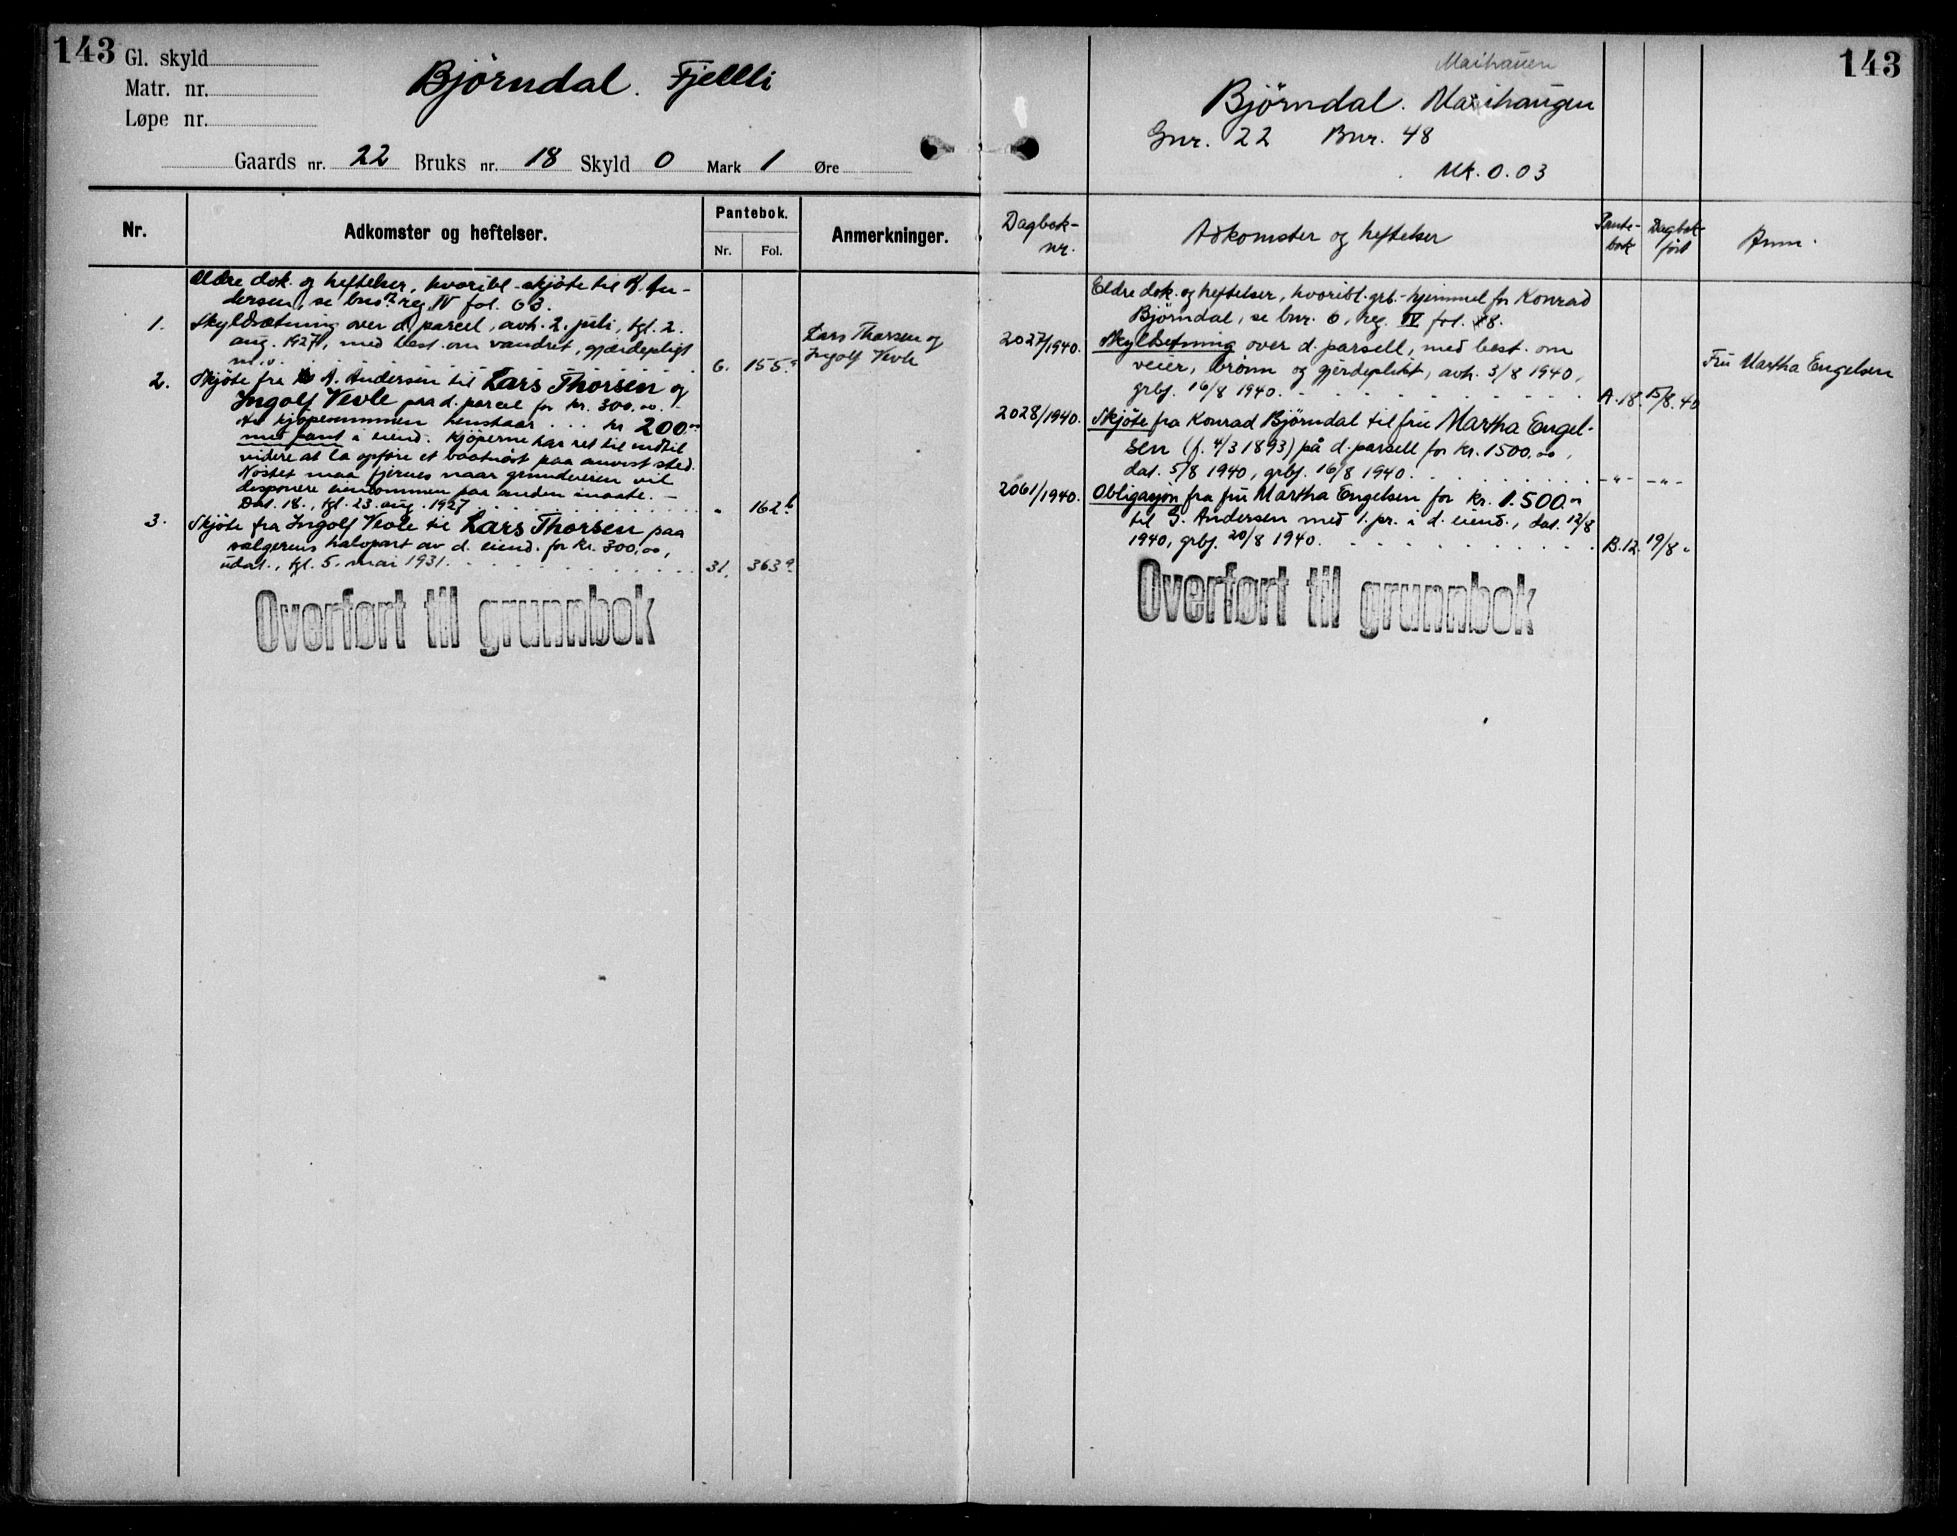 143
Gl. skyld
Matr. nr.
Løpe nr.
Bjørndal. Fjellli
Gaards nr. 22 Bruks nr. 18 Skyld 0 Mark 1 Øre
Nr.
Adkomster og heftelser.
Pantebok.
Nr. Fol.
Anmerkninger.
Ældre dok. og heftelser, hvoribl. skjøte til A. An-
dersen, se bns. reg. IV fol. 63.
1. Skyldsætning over d. parcel, avh. 2. juli, tgl. 2.
aug. 1927, med best. om vandret, gjærdepligt
m.v. 6. 155a
Lars Thorsen og
Ingolf Vevle
2. Skjøte fra A. Andersen til Lars Thorsen og
Ingolf Vevle paa d. parcel for kr. 300,00.
Av kjøpesummen henstaar . . . kr 200
med pant i eiend. Kjøperne har ret til indtil
videre at la opføre et baatnøst paa anvist sted.
Nøstet maa fjernes naar grundeieren vil
disponere eiendommen paa anden maate. –
Dat. 18., tgl. 23. aug. 1927 " 162b
3. Skjøte fra Ingolf Vevle til Lars Thorsen paa
sælgerens halvpart av d. eiend. for kr. 300,00,
udat., tgl. 5. mai 1931. 31. 363a
Overført til grunnbok
143
Maihauen
Bjørndal. Maihaugen
Gnr. 22 Bnr. 48
Mk. 0.03
Dagbok-
nr.
Adkomster og heftelser
Pante-
bok
Dagbok-
ført
Anm.
Eldre dok. og heftelser, hvoribl. grb.-hjemmel for Konrad
Bjørndal, se bnr. 6, reg. IV fol. 8.
2027/1940. Skyldsetning over d. parsell, med best. om
veier, brønn og gjerdeplikt, avh. 3/8 1940,
grbf. 16/8 1940. A.18. 15/8.40
Fru Martha Engelsen
2028/1940. Skjøte fra Konrad Bjørndal til fru Martha Engel-
sen (f. 4/3 1893) på d. parsell for kr. 1500,00,
dat. 5/8 1940, grbf. 16/8 1940. -"- -"-
2061/1940. Obligasjon fra fru Martha Engelsen for kr. 1.500
til G. Andersen med 1. pr. i d. eiend., dat. 12/8
1940, grbf. 20/8 1940. B.12. 19/8 "
Overført til grunnbok